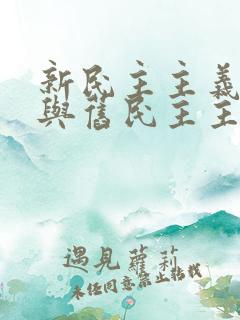 新民主主義
與舊民主主
遇見蘿莉
未經同意禁止轉載